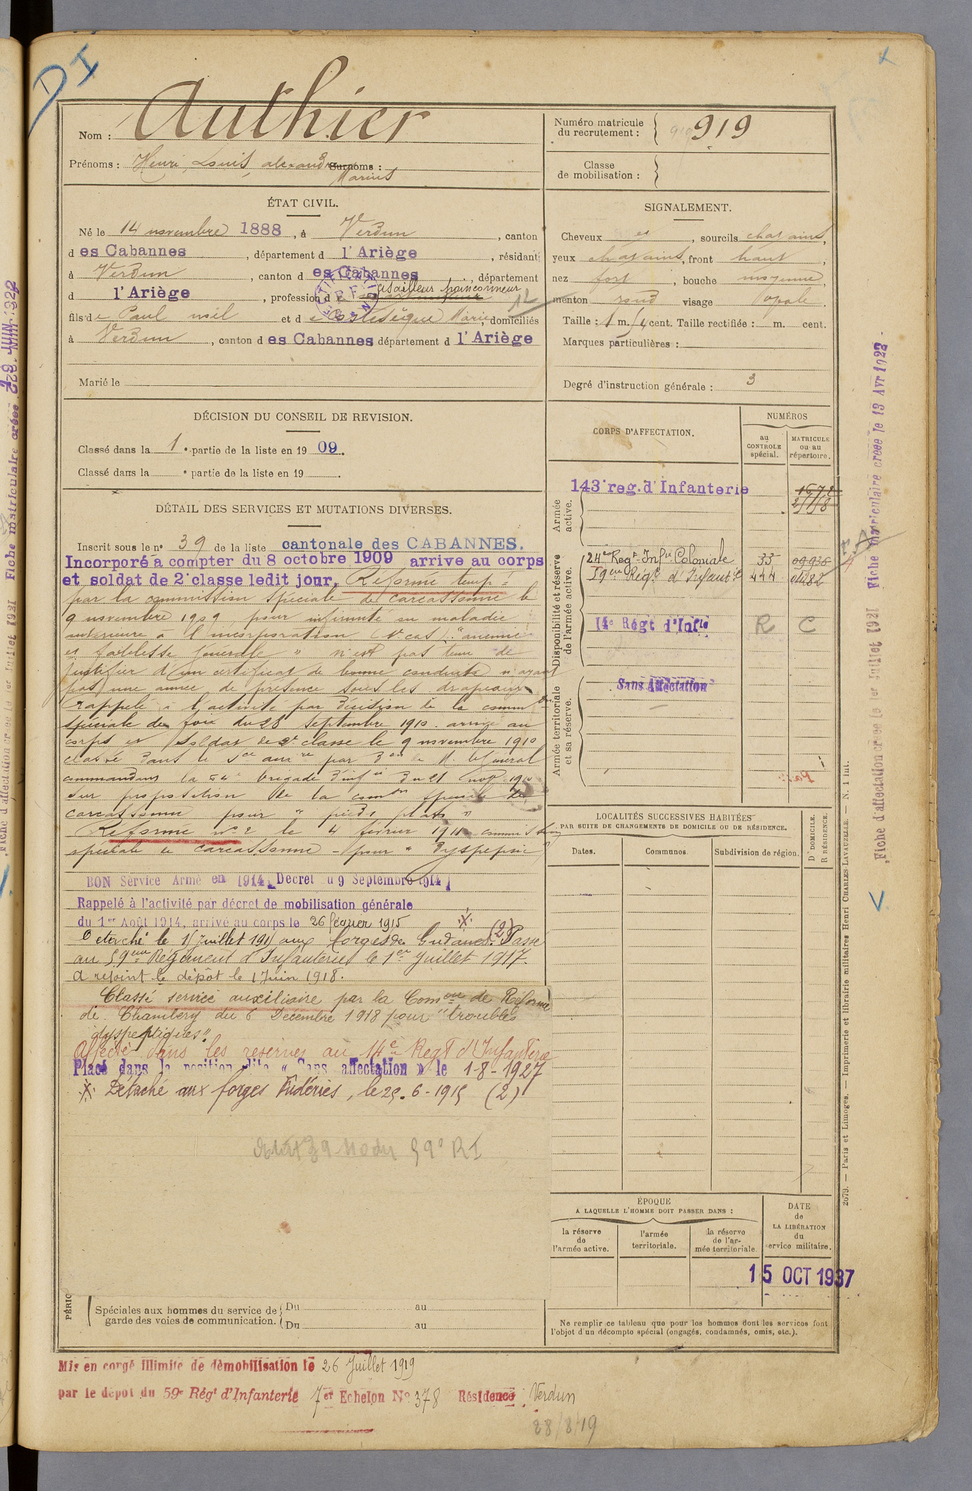 D I
Nom : Authier
Prénoms : Henri, Louis, alexandre Surnoms :
Marius
Numéro matricule
du recrutement : 919
Classe
de mobilisation :
ÉTAT CIVIL.
Né le 14 novembre 1888, à Verdun, canton
d es Cabannes, département d l'Ariège, résidant
à Verdun, canton d es Cabannes, département
d l'Ariège, profession d
fils de Paul et d Marie, domiciliés
à Verdun, canton d es Cabannes département d l'Ariège
Marié le
SIGNALEMENT.
Cheveux, sourcils chatains,
yeux chatains, front haut,
nez fort, bouche moyenne,
menton rond visage ovale.
Taille : 1 m. cent. Taille rectifiée : m. cent.
Marques particulières :
Degré d'instruction générale : 3
DÉCISION DU CONSEIL DE REVISION.
Classé dans la 1e partie de la liste en 1909.
Classé dans la e partie de la liste en 19
DÉTAIL DES SERVICES ET MUTATIONS DIVERSES.
Inscrit sous le n° 39 de la liste cantonale des CABANNES.
Incorporé a compter du 8 octobre 1909 arrive au corps
et soldat de 2e classe ledit jour. Réformé temp.
par la commission spéciale de Carcassonne le
9 novembre 1909 pour infirmité ou maladie
antérieure à l'incorporation
et faiblesse générale " n'est pas tenu de
justifier d'un certificat de bonne conduite n'ayant
pas une année de présence sous les drapeaux
Rappelé à l'activité par décision de la comm.
spéciale de Foix du 28 septembre 1910. arrivé au
corps et soldat de 2e classe le 9 novembre 1910
classé dans le par du Général
commandant la brigade d'inf. du 21 nov. 1910
sur proposition de la comon spéciale de
Carcassonne pour " pieds plats "
Réformé n° 2 le 4 février 1911 commission
spéciale de Carcassonne - pour " Dyspepsie
BON Service Armé en 1914, Décret du 9 Septembre 1914
Rappelé à l'activité par décret de mobilisation générale
du 1er Août 1914, arrivé au corps le 26 février 1915
Détaché le 1 juillet 191 aux forges de Gudanes (2) Passé
au 59eme Régiment d'Infanterie le 1er Juillet 1917.
a rejoint le dépôt le 1 Juin 1918.
Classé service auxiliaire par la Comon de Réforme
de Chambéry du 6 Décembre 1918 pour "troubles
dyspeptiques".
Affecté dans les réserves au 14e Régt d'Infanterie
Placé dans la position dite « Sans affectation » le 1-8-1927
Détaché aux forges, le 25-6-1915 (2)
59e RI
CORPS D'AFFECTATION.
NUMÉROS
au
CONTROLE
spécial.
MATRICULE
ou au
répertoire.
Armée
active.
143e reg. d'Infanterie
Disponibilité et réserve
de l'armée active.
24e Regt Infie Coloniale 33
59eme Régt d'Infantie 444
14e Régt d'Infie R C
Armée territoriale
et sa réserve.
Sans Affectation
LOCALITÉS SUCCESSIVES HABITÉES
PAR SUITE DE CHANGEMENTS DE DOMICILE OU DE RÉSIDENCE.
Dates.
Communes.
Subdivision de région.
D DOMICILE.
R RÉSIDENCE.
ÉPOQUE
A LAQUELLE L'HOMME DOIT PASSER DANS :
DATE
de
LA LIBÉRATION
du
service militaire.
la réserve
de
l'armée active.
l'armée
territoriale.
la réserve
de l'ar-
mée territoriale
15 OCT 1937
PÉRIO
Spéciales aux hommes du service de
garde des voies de communication.
Du au
Du au
Ne remplir ce tableau que pour les hommes dont les services font
l'objet d'un décompte spécial (engagés, condamnés, omis, etc.).
Mis en congé illimité de démobilisation le 26 Juillet 1919
par le dépôt du 59e Régt d'Infanterie 7er Echelon N° 378 Résidence : Verdun
28/8/19
Fiche matriculaire créée le 13 Avr 1922
Fiche d'affectation créée le 1er Juillet 1921
2679. — Paris et Limoges. — Imprimerie et librairie militaires Henri CHARLES-LAVAUZELLE. — N. 1 int.